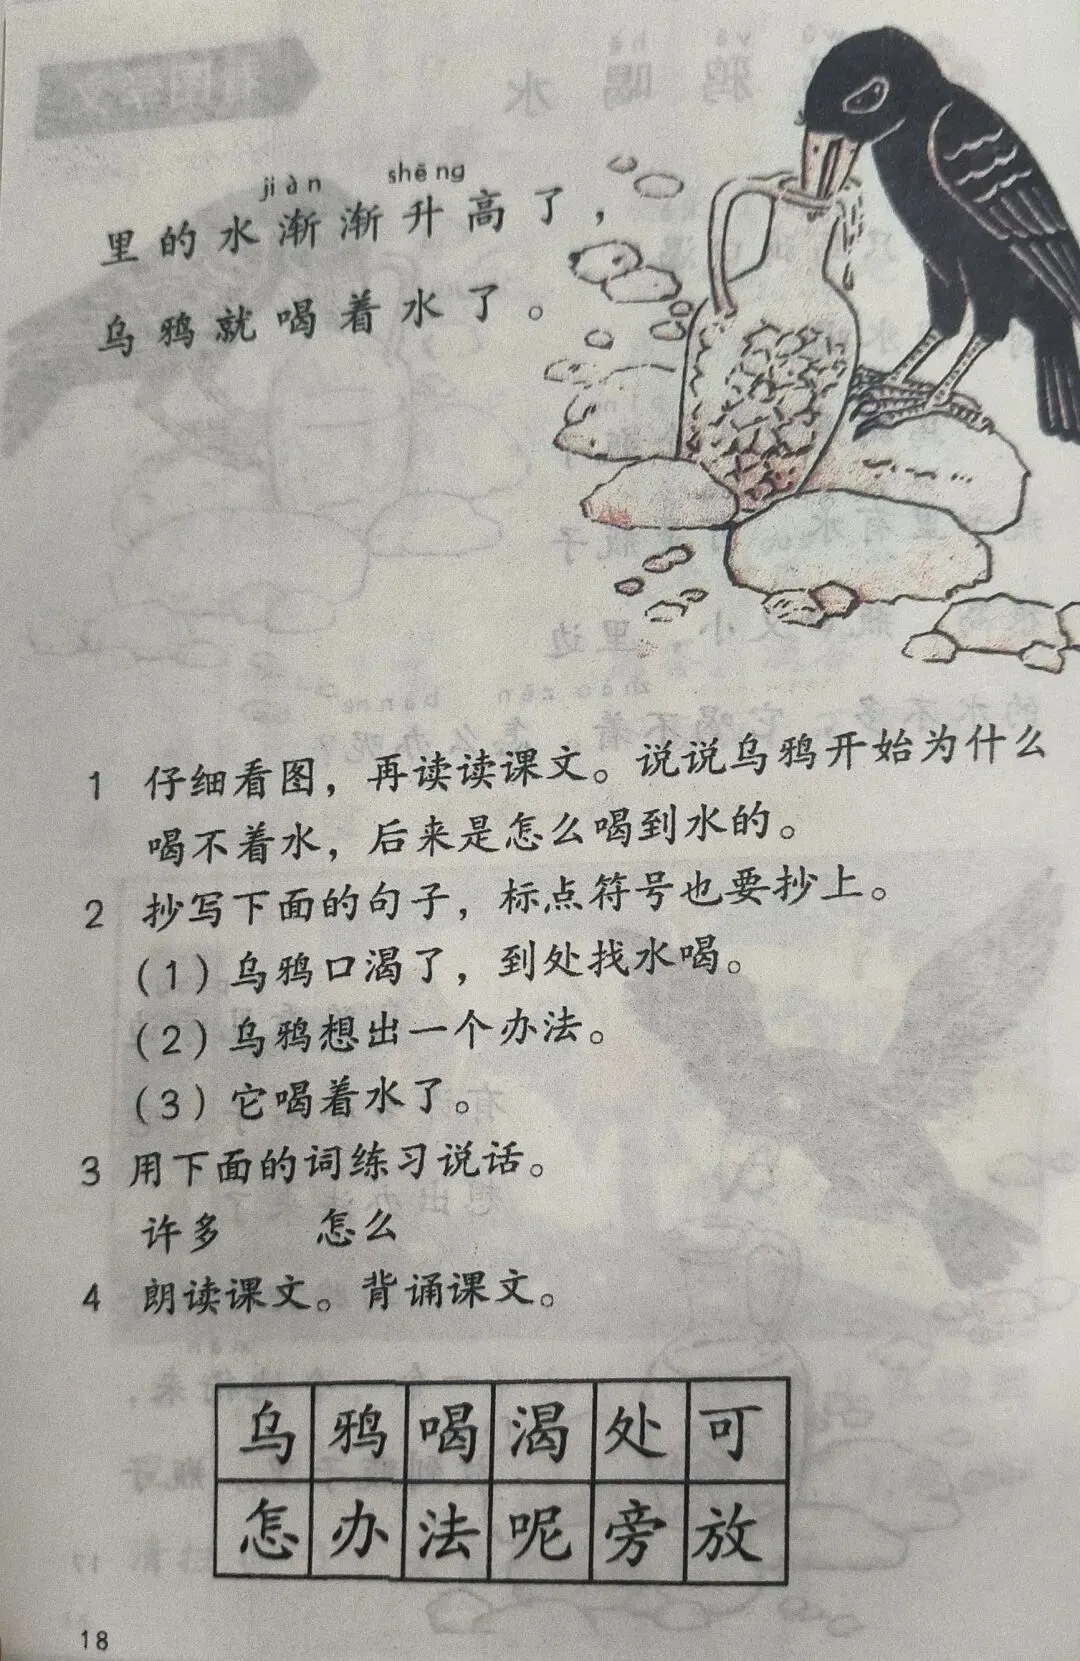 jiàn shēng
里的水渐渐升高了，
乌鸦就喝着水了。
1 仔细看图，再读读课文。说说乌鸦开始为什么
喝不着水，后来是怎么喝到水的。
2 抄写下面的句子，标点符号也要抄上。
（1）乌鸦口渴了，到处找水喝。
（2）乌鸦想出一个办法。
（3）它喝着水了。
3 用下面的词练习说话。
许多 怎么
4 朗读课文。背诵课文。
乌 鸦 喝 渴 处 可
怎 办 法 呢 旁 放
18